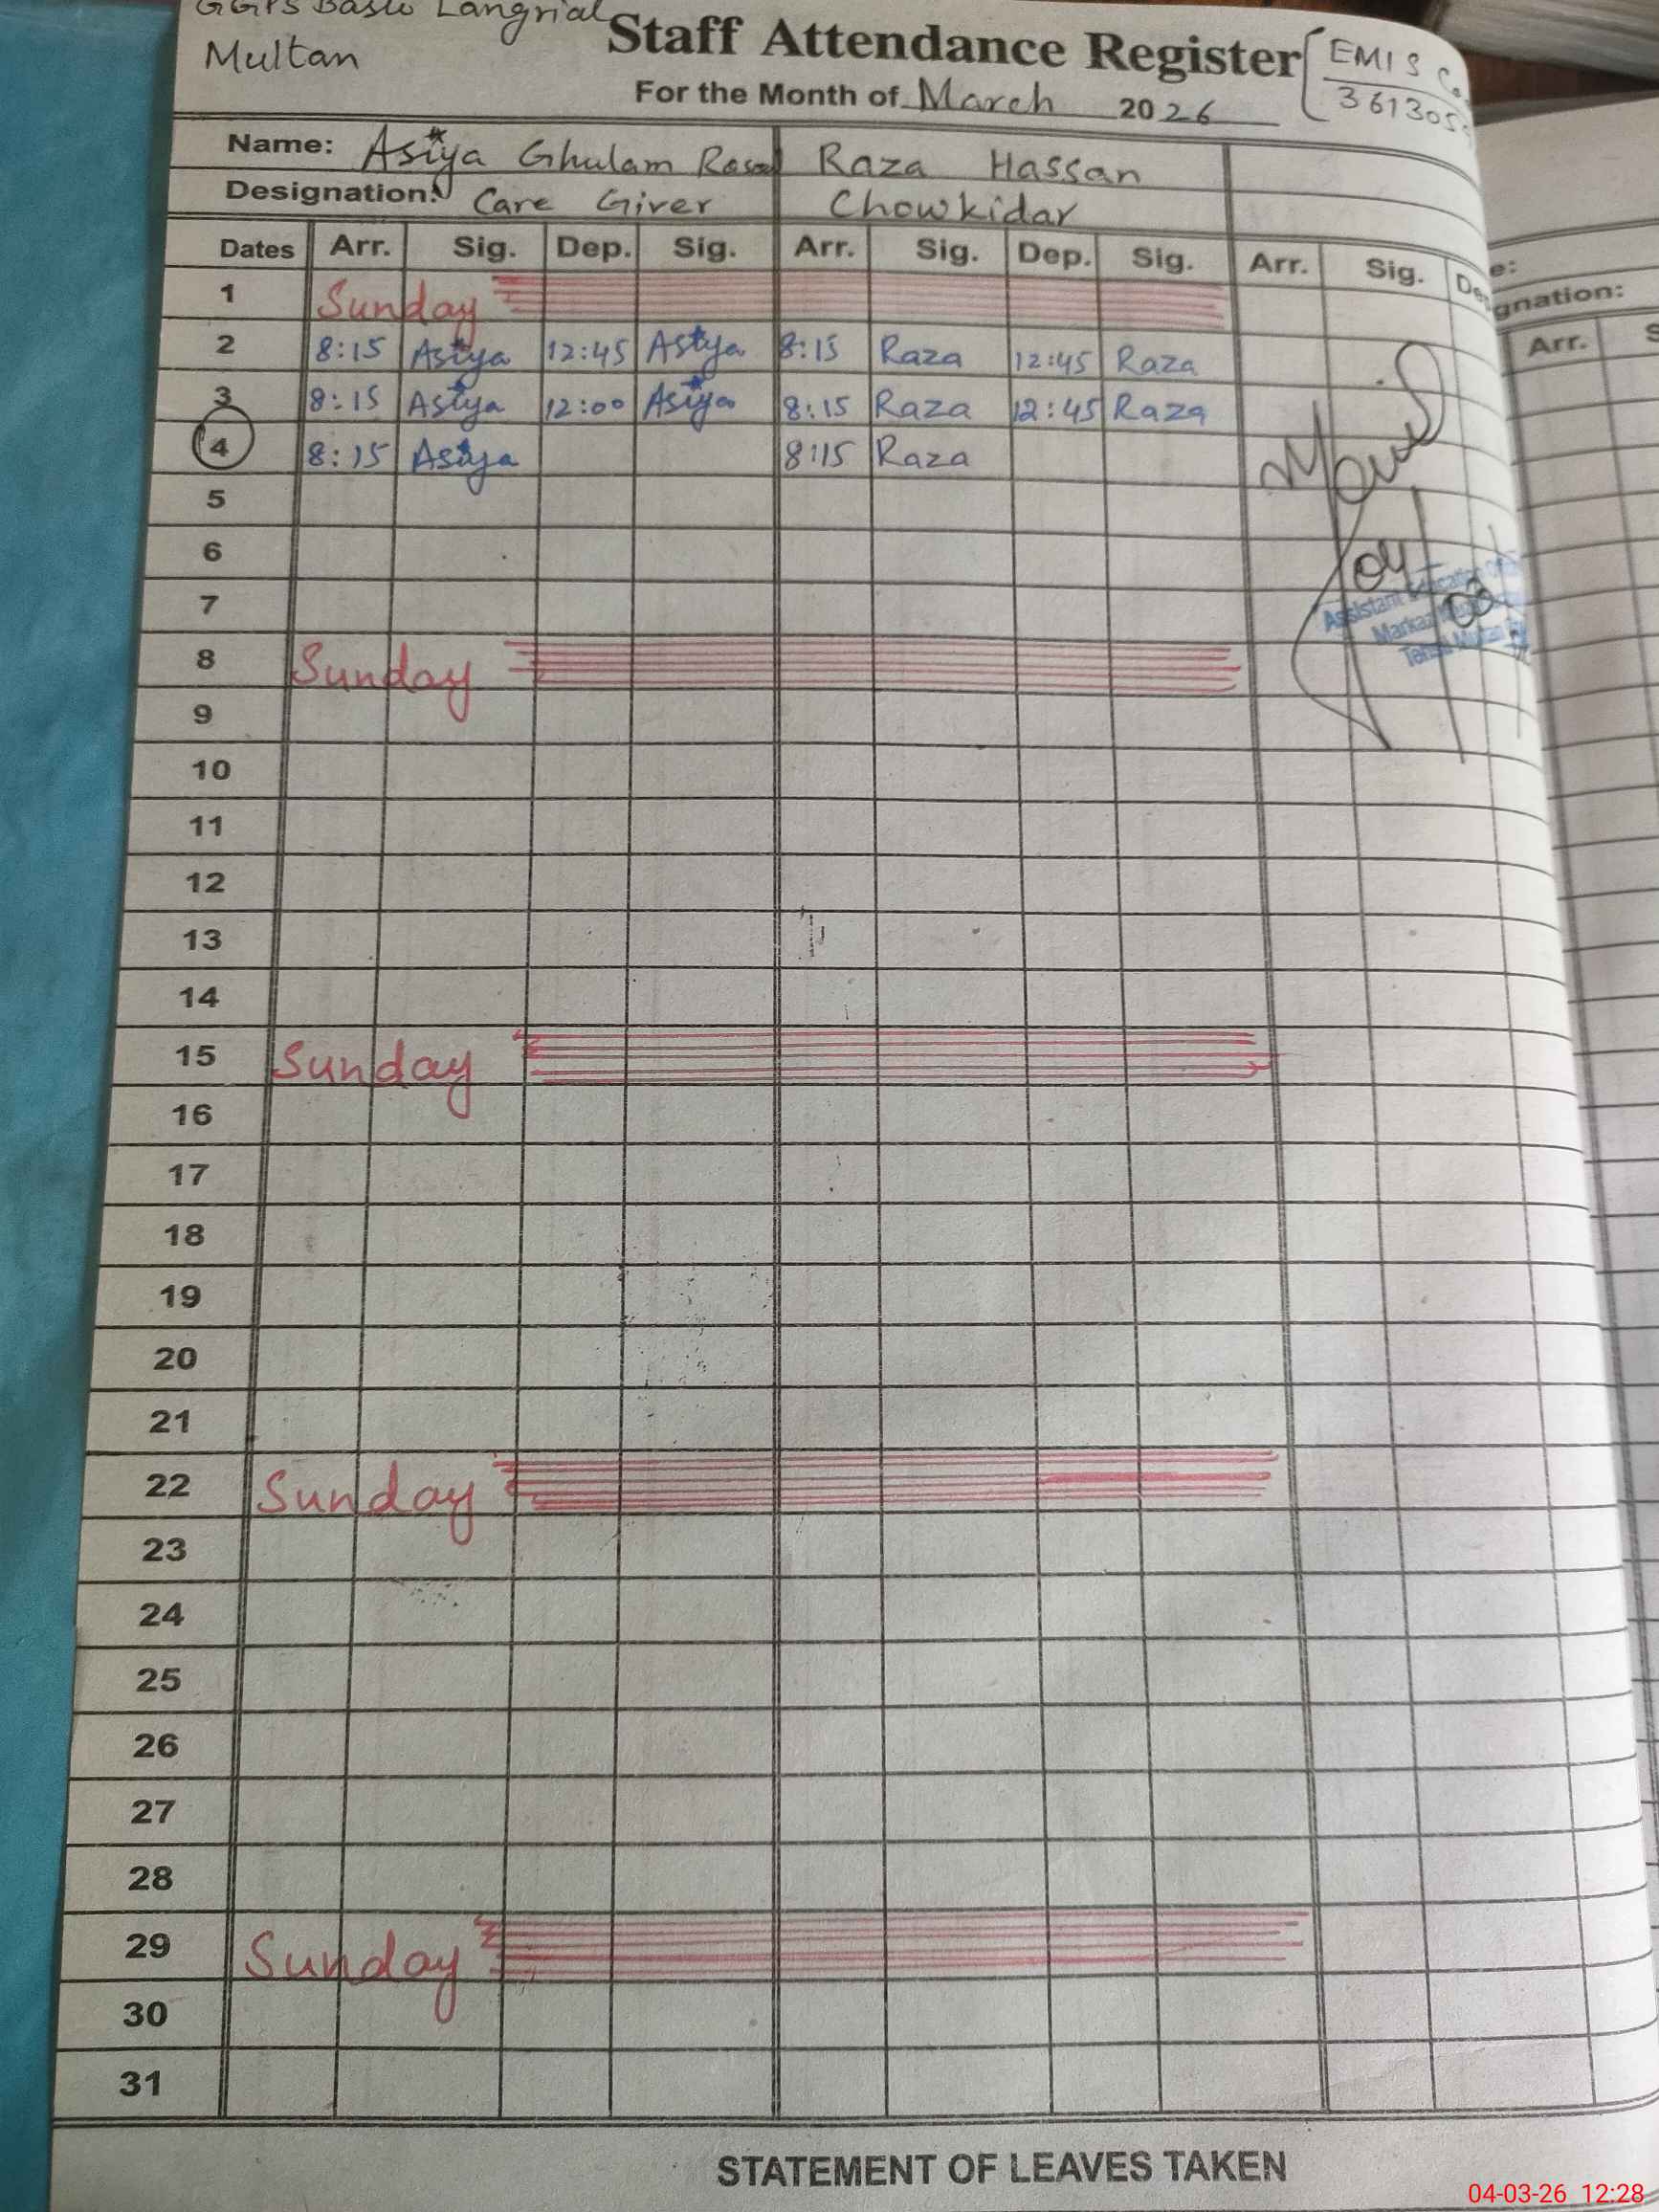 GGPS Basti Langrial
Multan
Staff Attendance Register
EMIS Co
361305
For the Month of March 2026
Name: Asiya Ghulam Rasool Raza Hassan
Designation: Care Giver Chowkidar
Dates Arr. Sig. Dep. Sig. Arr. Sig. Dep. Sig. Arr. Sig. De
1 Sunday
2 8:15 Asiya 12:45 Asiya 8:15 Raza 12:45 Raza
3 8:15 Asiya 12:00 Asiya 8:15 Raza 12:45 Raza
4 8:15 Asiya 8:15 Raza
5
6
7
8 Sunday
9
10
11
12
13
14
15 Sunday
16
17
18
19
20
21
22 Sunday
23
24
25
26
27
28
29 Sunday
30
31
04
03
Assistant Education
Markaz
Tehsil Multan
STATEMENT OF LEAVES TAKEN
e:
gnation:
Arr. S
04-03-26 12:28